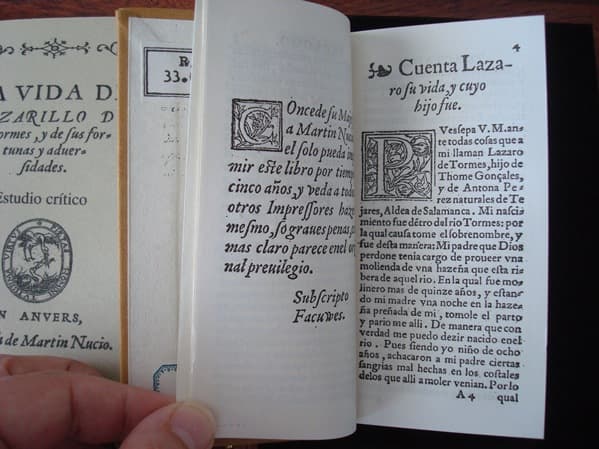 A VIDA D
ZARILLO D
ormes, y de sus for-
tunas y aduer-
sidades.
Estudio crítico
VIRTUS
N ANVERS,
de Martin Nucio.
33.
COncede su
a Martin Nucio
el solo pueda
mir este libro por tiem
cinco años, y veda a todo
otros Impressores
mesmo, so graues penas
mas claro parece enel
nal preuilegio.
Subscripto
Facuwes.
4
Cuenta Laza-
ro su vida, y cuyo
hijo fue.
PVes sepa V. M. an-
te todas cosas que a
mi llaman Lazaro
de Tormes, hijo de
Thome Gonçales,
y de Antona Pe
rez naturales de Te
jares, Aldea de Salamanca. Mi nasci
miento fue dētro del rio Tormes: por
la qual causa tome el sobrenombre, y
fue desta manera: Mi padre que Dios
perdone tenia cargo de prouver vna
molienda de vna hazeña que esta ri-
bera de aquel rio. En la qual fue mo-
linero mas de quinze años, y estan-
do mi madre vna noche en la hazeña
preñada de mi, tomole el parto
y pario me alli. De manera que con
verdad me puedo dezir nacido enel
rio. Pues siendo yo niño de ocho
años, achacaron a mi padre ciertas
sangrias mal hechas en los costales
delos que alli a moler venian. Por lo
A 4 qual